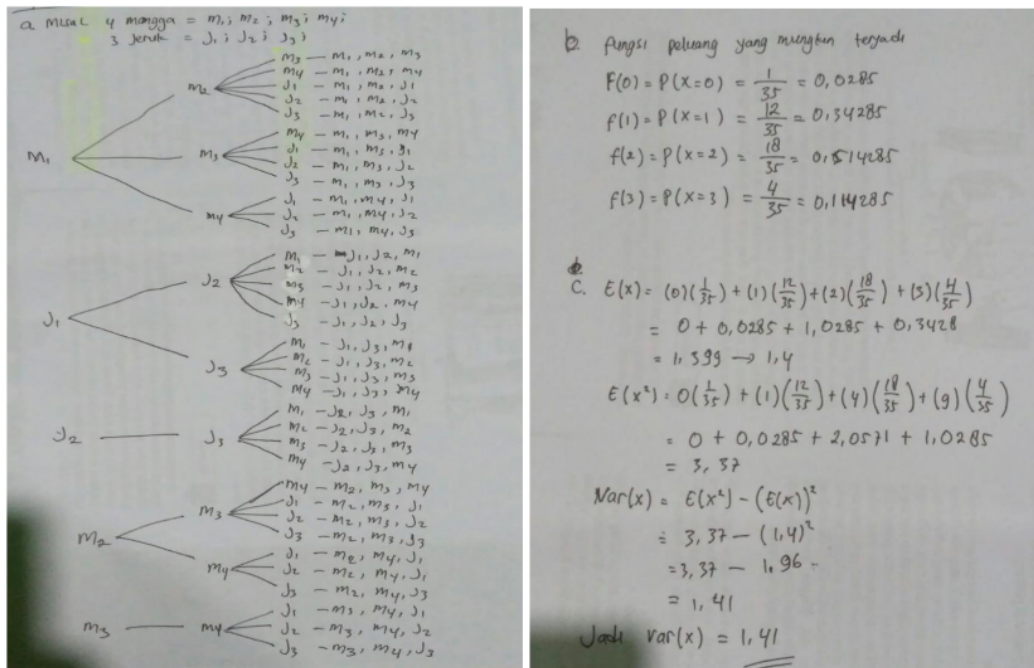 a Misal 4 mangga = m1; m2; m3; m4;
3 Jeruk = J1; J2; J3;
M1
m2
m3 – m1, m2, m3
m4 – m1, m2, m4
J1 – m1, m2, J1
J2 – m1, m2, J2
J3 – m1, m2, J3
m3
m4 – m1, m3, m4
J1 – m1, m3, J1
J2 – m1, m3, J2
J3 – m1, m3, J3
m4
J1 – m1, m4, J1
J2 – m1, m4, J2
J3 – m1, m4, J3
J1
J2
m1 – J1, J2, m1
m2 – J1, J2, m2
m3 – J1, J2, m3
m4 – J1, J2, m4
J3 – J1, J2, J3
J3
m1 – J1, J3, m1
m2 – J1, J3, m2
m3 – J1, J3, m3
m4 – J1, J3, m4
J2
J3
m1 – J2, J3, m1
m2 – J2, J3, m2
m3 – J2, J3, m3
m4 – J2, J3, m4
M2
m3
m4 – m2, m3, m4
J1 – m2, m3, J1
J2 – m2, m3, J2
J3 – m2, m3, J3
m4
J1 – m2, m4, J1
J2 – m2, m4, J1
J3 – m2, m4, J3
m3
m4
J1 – m3, m4, J1
J2 – m3, m4, J2
J3 – m3, m4, J3
b. fungsi peluang yang mungkin terjadi
F(0) = P(X=0) = 1/35 = 0,0285
f(1) = P(X=1) = 12/35 = 0,34285
f(2) = P(X=2) = 18/35 = 0,514285
f(3) = P(X=3) = 4/35 = 0,114285
C. E(x) = (0)(1/35) + (1)(12/35) + (2)(18/35) + (3)(4/35)
= 0 + 0,0285 + 1,0285 + 0,3428
= 1,399 → 1,4
E(x²) = 0(1/35) + (1)(12/35) + (4)(18/35) + (9)(4/35)
= 0 + 0,0285 + 2,0571 + 1,0285
= 3,37
Var(x) = E(x²) – (E(x))²
= 3,37 – (1,4)²
= 3,37 – 1,96
= 1,41
Jadi var(x) = 1,41